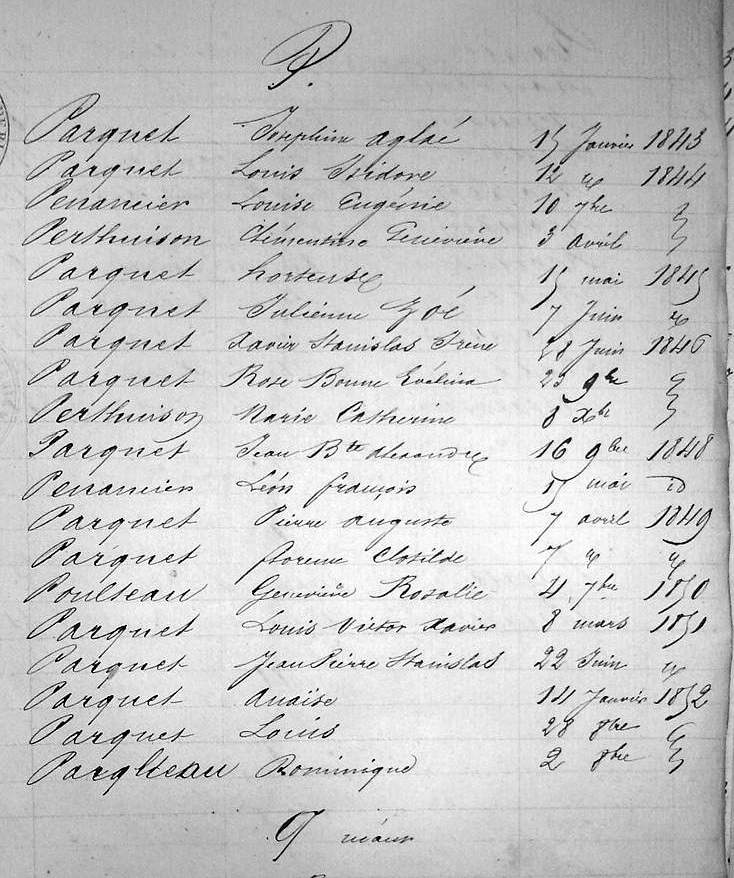 P.
Parquet Josephine Aglaé 15 Janvier 1843
Parquet Louis Isidore 12 " 1844
Penancier Louise Eugénie 10 7bre "
Perthuison Clémentine Geneviève 3 avril "
Parquet hortense 15 mai 1845
Parquet Julienne Zoé 7 Juin "
Parquet Xavier Stanislas Irène 28 Juin 1846
Parquet Rose Bonne Evélina 23 9bre "
Perthuison Marie Catherine 8 Xbre "
Parquet Jean Bte alexandre 16 9bre 1848
Penancier Léon françois 15 mai do
Parquet Pierre auguste 7 avril 1849
Parquet florence Clotilde 7 " "
Poulteau Geneviève Rosalie 4 7bre 1850
Parquet Louis Victor Xavier 8 mars 1851
Parquet Jean Pierre Stanislas 22 Juin "
Parquet anaïse 14 Janvier 1852
Parquet Louis 28 8bre "
Dominique 2 8bre "
Q néant